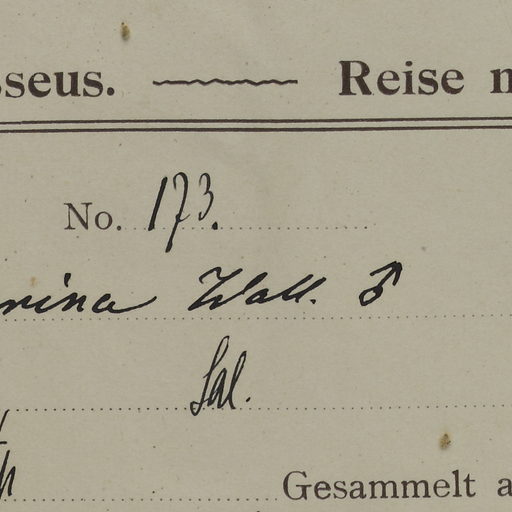 sseus. Reise n
No. 173.
rina Wall. ♂
Sal.
Gesammelt a